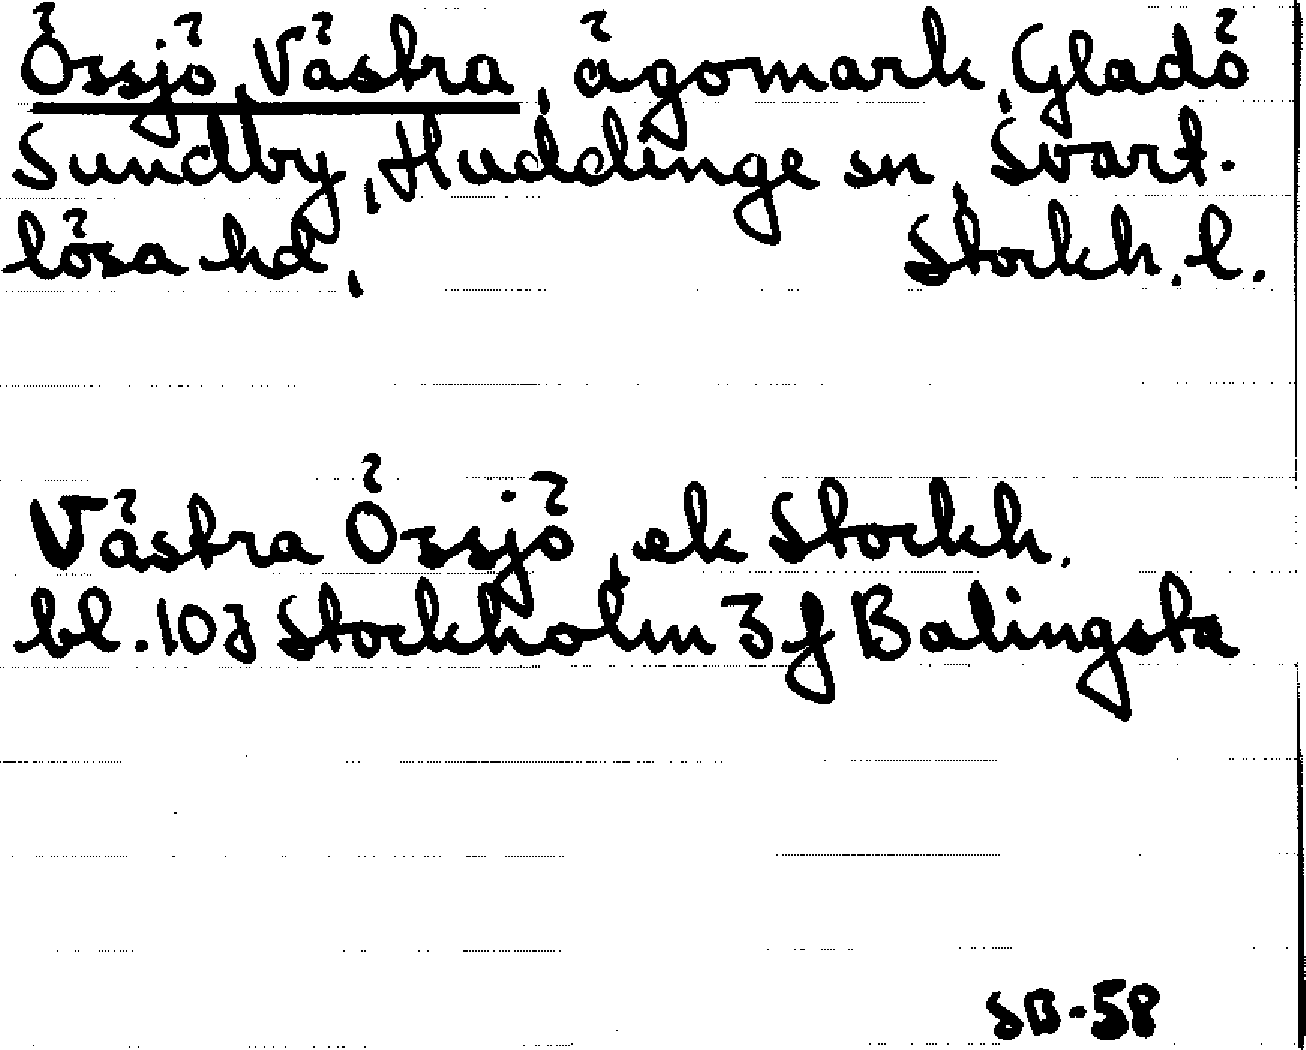 Össjö, Västra, ägomark, Gladö
Sundby, Huddinge sn, Svart-
lösa hd, Stockh. l.
Västra Össjö, ek Stockh.
bl. 10J Stockholm 3f Balingsta
SB-58